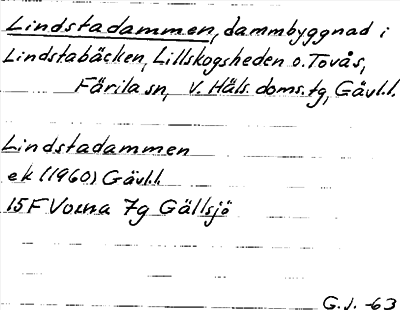 Lindstadammen, dammbyggnad i
Lindstabäcken, Lillskogsheden o. Tovås,
Färila sn, V. Häls. doms.tg, Gävl.l.
Lindstadammen
ek (1960) Gävl.l.
15F Voxna 7g Gällsjö
G.J. -63